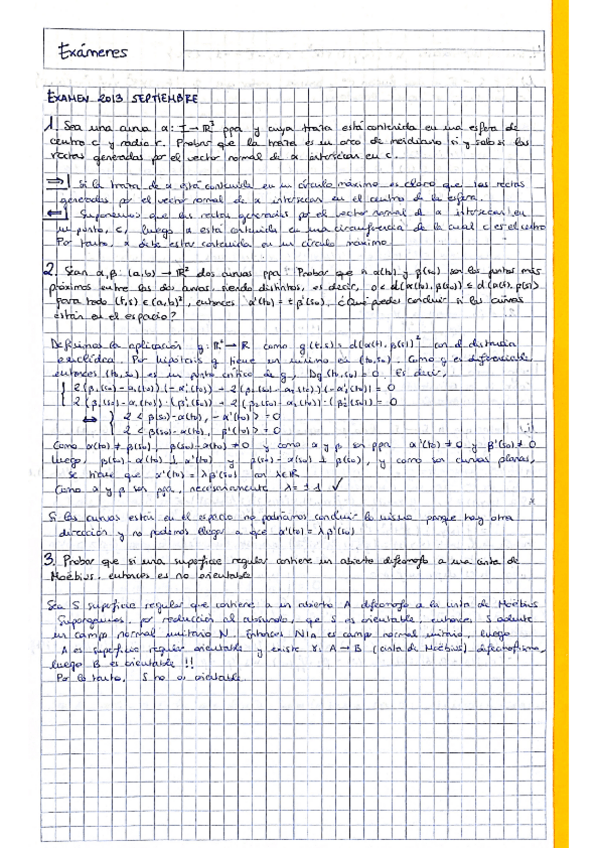 Exámenes
EXAMEN 2013 SEPTIEMBRE
1. Sea una curva α: I → R³ ppa y cuya traza está contenida en una esfera de
centro c y radio r. Probar que la traza es un arco de meridiano si y solo si las
rectas generadas por el vector normal de α intersecan en c.
⇒| Si la traza de α está contenida en un círculo máximo es claro que las rectas
generadas por el vector normal de α intersecan en el centro de la esfera.
⇐| Supongamos que las rectas generadas por el vector normal de α intersecan en
un punto, c, luego α está contenida en una circunferencia de la cual c es el centro
Por tanto, α debe estar contenida en un círculo máximo
2. Sean α, β: (a,b) → R² dos curvas ppa. Probar que si α(t₀) y β(s₀) son los puntos más
próximos entre las dos curvas, siendo distintos, es decir, 0 < d(α(t₀), β(s₀)) ≤ d(α(t), β(s))
para todo (t,s) ∈ (a,b)², entonces α'(t₀) = ± β'(s₀). ¿Qué puedes concluir si las curvas
están en el espacio?
Definimos la aplicación g: R² → R como g(t,s) = d(α(t), β(s))² con d distancia
euclídea. Por hipótesis g tiene un mínimo en (t₀,s₀). Como g es diferenciable,
entonces (t₀,s₀) es un punto crítico de g, Dg(t₀,s₀) = 0. Es decir,
{ 2(β₁(s₀)-α₁(t₀))(-α₁'(t₀)) + 2(β₂(s₀)-α₂(t₀))(-α₂'(t₀)) = 0
{ 2(β₁(s₀)-α₁(t₀))·(β₁'(s₀)) + 2(β₂(s₀)-α₂(t₀))·(β₂'(s₀)) = 0
⇔ { 2<β(s₀)-α(t₀), -α'(t₀)> = 0
{ 2<β(s₀)-α(t₀), β'(t₀)> = 0
Como α(t₀) ≠ β(s₀), β(s₀)-α(t₀) ≠ 0 y como α y β son ppa α'(t₀) ≠ 0 y β'(s₀) ≠ 0
luego, β(s₀)-α(t₀) ⊥ α'(t₀) y β(s₀)-α(t₀) ⊥ β'(s₀), y como son curvas planas,
se tiene que α'(t₀) = λβ'(s₀) con λ∈R
Como α y β son ppa, necesariamente λ = ±1 ✓
Si las curvas están en el espacio no podríamos concluir lo mismo porque hay otra
dirección y no podemos llegar a que α'(t₀) = λβ'(s₀)
3. Probar que si una superficie regular contiene un abierto difeomorfo a una cinta de
Moëbius, entonces es no orientable
Sea S superficie regular que contiene a un abierto A difeomorfo a la cinta de Moëbius
Supongamos, por reducción al absurdo, que S es orientable, entonces S admite
un campo normal unitario N. Entonces N|A es campo normal unitario, luego
A es superficie regular orientable y existe γ: A → B (cinta de Moëbius) difeomorfismo,
luego B es orientable !!
Por lo tanto, S no es orientable